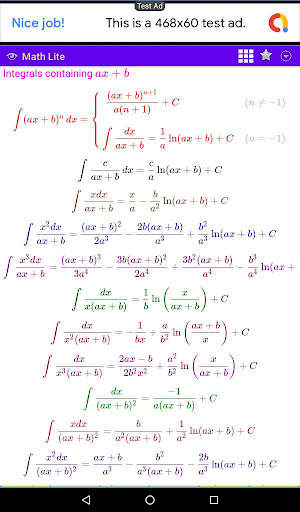 Test Ad
Nice job! This is a 468x60 test ad.
Math Lite
Integrals containing ax + b
∫(ax + b)^n dx = { (ax + b)^{n+1} / a(n + 1) + C (n ≠ −1)
∫ dx / ax + b = 1/a ln(ax + b) + C (n = −1)
∫ c / ax + b dx = c/a ln(ax + b) + C
∫ xdx / ax + b = x/a − b/a² ln(ax + b) + C
∫ x²dx / ax + b = (ax + b)² / 2a³ − 2b(ax + b) / a³ + b²/a³ ln(ax + b) + C
∫ x³dx / ax + b = (ax + b)³ / 3a⁴ − 3b(ax + b)² / 2a⁴ + 3b²(ax + b) / a⁴ − b³/a⁴ ln(ax +
∫ dx / x(ax + b) = 1/b ln(x / ax + b) + C
∫ dx / x²(ax + b) = − 1/bx + a/b² ln(ax + b / x) + C
∫ dx / x³(ax + b) = 2ax − b / 2b²x² + a²/b² ln(x / ax + b) + C
∫ dx / (ax + b)² = −1 / a(ax + b) + C
∫ xdx / (ax + b)² = b / a²(ax + b) + 1/a² ln(ax + b) + C
∫ x²dx / (ax + b)² = ax + b / a³ − b² / a³(ax + b) − 2b/a³ ln(ax + b) + C